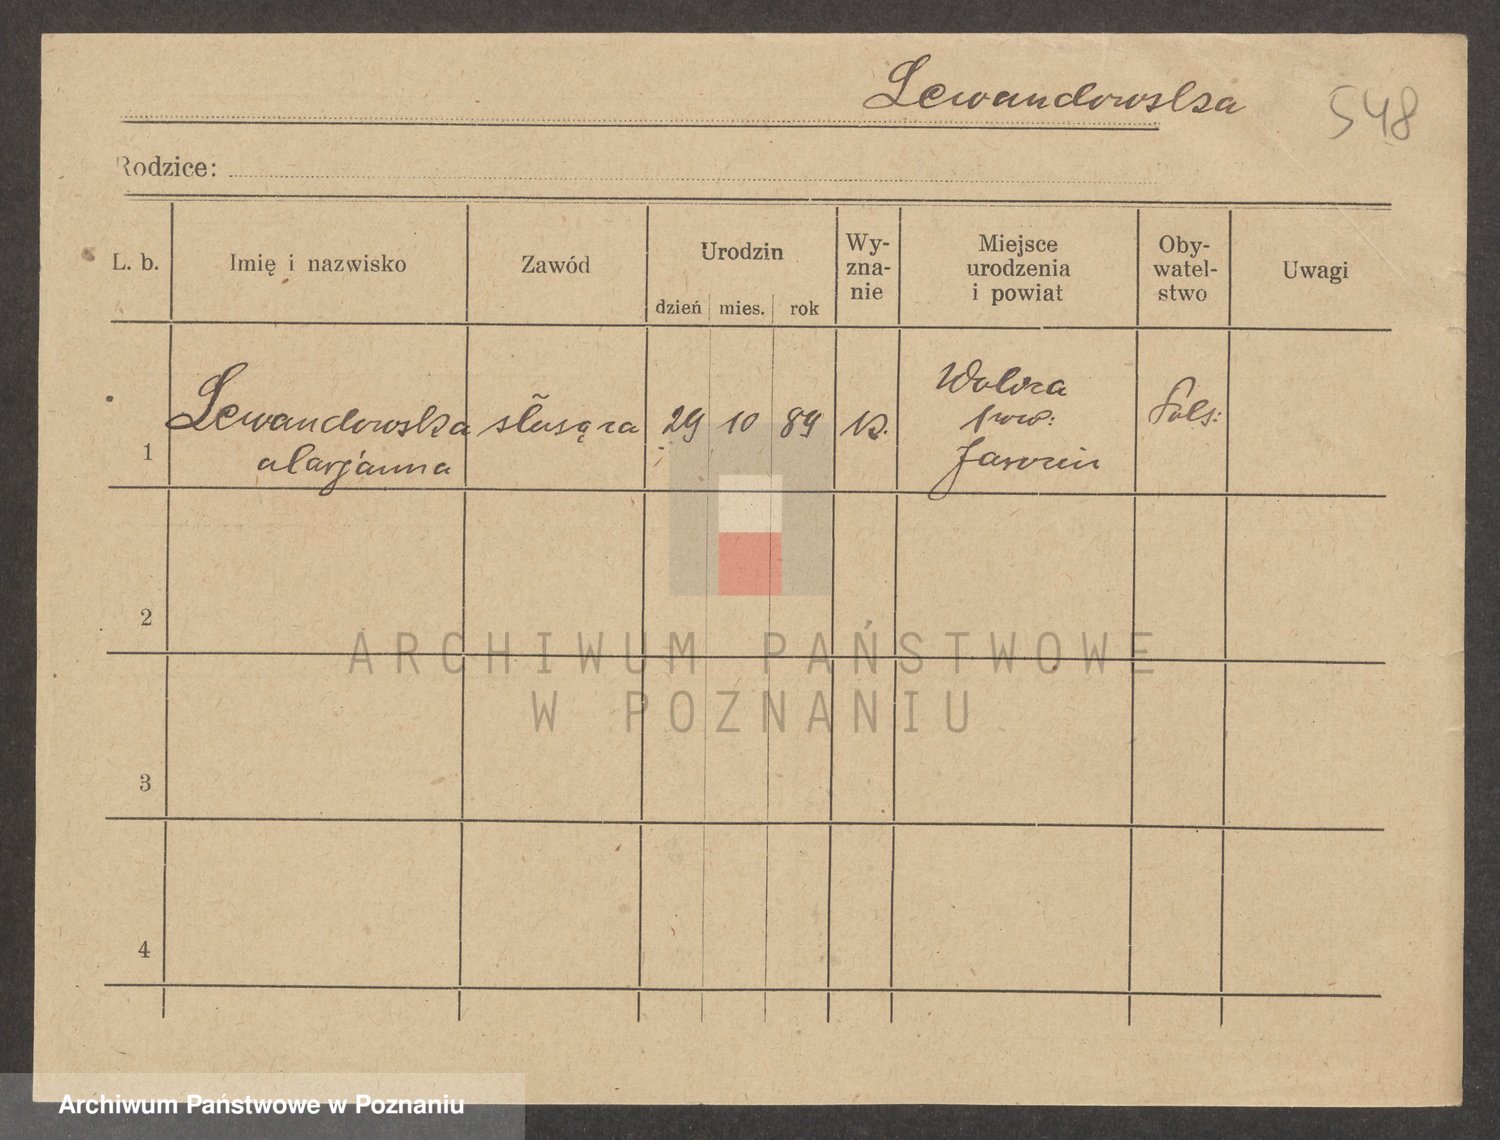 Lewandowska
548
Rodzice:
L. b.
Imię i nazwisko
Zawód
Urodzin
dzień mies. rok
Wy-
zna-
nie
Miejsce
urodzenia
i powiat
Oby-
watel-
stwo
Uwagi
1
Lewandowska
Marjanna
służąca
29 10 89
k.
pow:
Jarocin
Pols:
2
3
4
ARCHIWUM PAŃSTWOWE
W POZNANIU
Archiwum Państwowe w Poznaniu